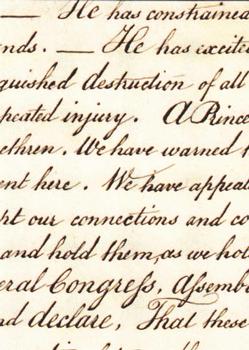 — He has constrained
nds. — He has excited
guished destruction of all
peated injury. A Prince
ethren. We have warned t
ent here. We have appeal
rt our connections and co
and hold them, as we hol
eral Congress, Assemb
nd declare, That these